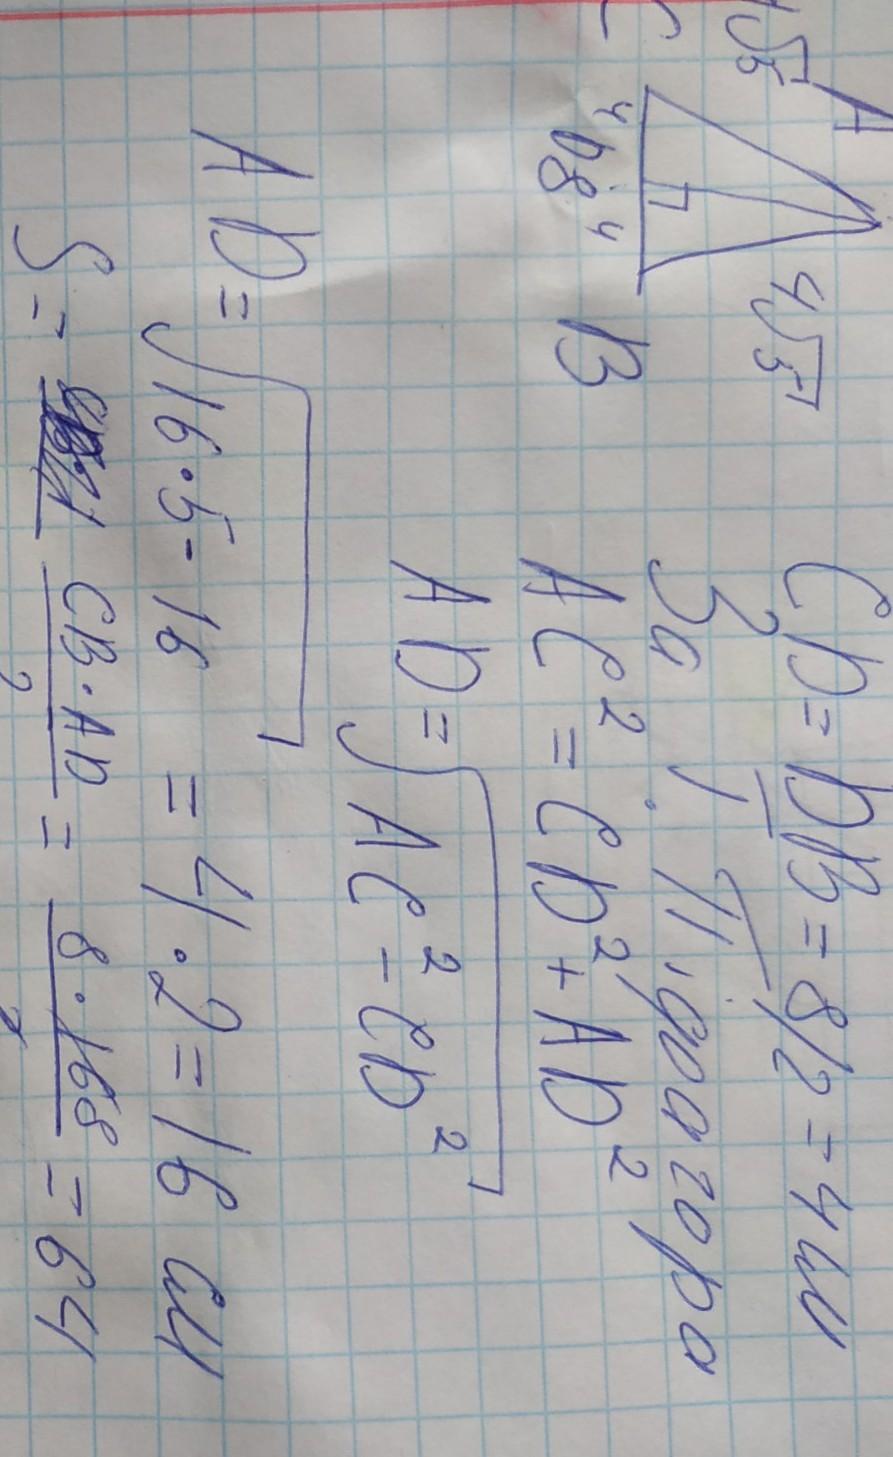 A
4√5
4√5
C
B
4 D 4
8
CD = DB = 8/2 = 4 см
За т. Піфагора
AC² = CD² + AD²
AD = √AC² - CD²
AD = √16·5-16 = 4·2 = 16 см
S = CB·AD/2 = 8·168/2 = 64